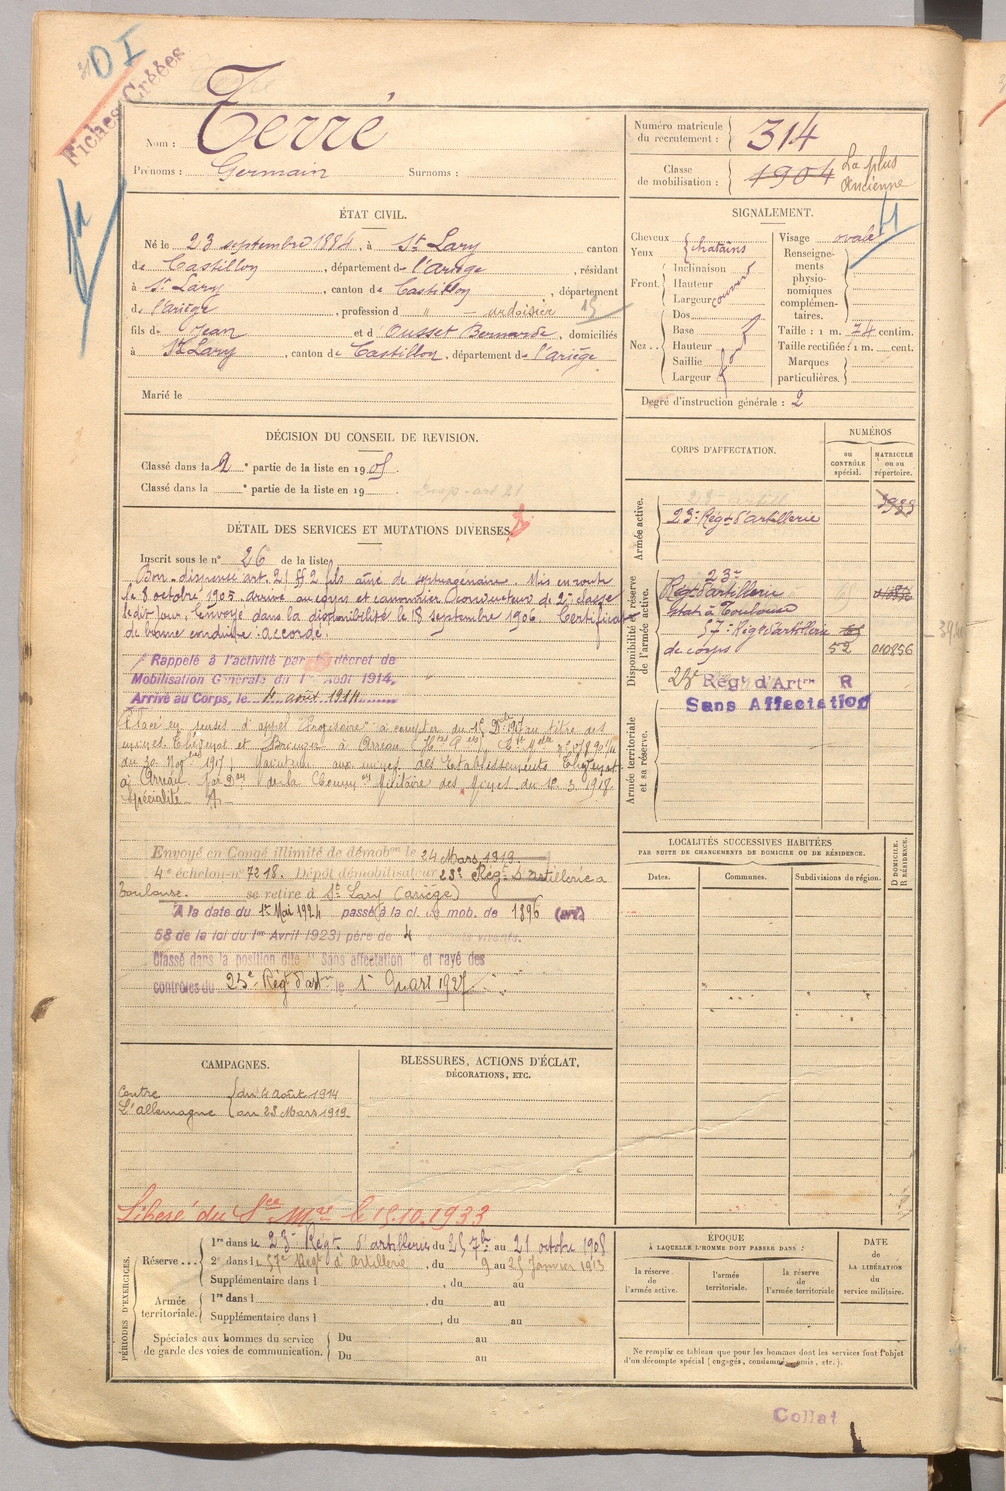 D I
Fiches Créées
Nom : Terré
Prénoms : Germain Surnoms :
Numéro matricule du recrutement : 314
Classe de mobilisation : 1904 La plus Ancienne
ÉTAT CIVIL.
Né le 23 septembre 1884, à St Lary canton
de Castillon, département de l'ariège, résidant
à St Lary, canton de Castillon, département
d l'ariège, profession d " — ardoisier 15
fils de Jean et d Ousset Bernarde, domiciliés
à St Lary, canton de Castillon, département de l'ariège
Marié le
SIGNALEMENT.
Cheveux
Yeux
chatains
Front.
Inclinaison
Hauteur
Largeur
couvert
Nez...
Dos
Base
Hauteur
Saillie
Largeur
Visage ovale
Renseignements physionomiques complémentaires.
Taille : 1 m. 74 centim.
Taille rectifiée : 1 m. cent.
Marques particulières.
Degré d'instruction générale : 2
DÉCISION DU CONSEIL DE REVISION.
Classé dans la 2e partie de la liste en 1905.
Classé dans la e partie de la liste en 19
DÉTAIL DES SERVICES ET MUTATIONS DIVERSES.
Inscrit sous le n° 26 de la liste
Bon, dispensé art. 21 § 2 fils aîné de septuagénaire. Mis en route
le 8 octobre 1905 arrivé au corps et canonnier conducteur de 2e classe
le dit jour. Envoyé dans la disponibilité le 18 septembre 1906. Certificat
de bonne conduite : accordé.
Rappelé à l'activité par décret de
Mobilisation Générale du 1er Août 1914.
Arrivé au Corps, le 4 août 1914
Placé en sursis d'appel Provisoire à compter du 1er Dbre 1917 au titre des
mines et à Arreau
du 30 Nov 1917, Maintenu aux mines des Etablissements
à Arreau de la Militaire des Mines du 12.3.1918.
Spécialité
Envoyé en Congé illimité de démobon le 24 Mars 1919.
4e échelon n° 7218. Dépôt démobilisateur 23e Régt d'artillerie à
Toulouse. se retire à St Lary (ariège)
A la date du 1er Mai 1924 passé à la cl. de mob. de 1896 (art.
58 de la loi du 1er Avril 1923) père de 4 enfants vivants.
Classé dans la position dite "sans affectation" et rayé des
contrôles du 23e Régt d'artie le 1er Mars 1927
CORPS D'AFFECTATION.
NUMÉROS
au CONTRÔLE spécial.
MATRICULE ou au répertoire.
Armée active.
23e Régt d'artillerie
Disponibilité et réserve de l'armée active.
23e
Régt d'artillerie
état à Toulouse
57e Régt d'artillerie
de corps 52 010856
23e Régt d'Artie R
Sans Affectation
Armée territoriale et sa réserve.
LOCALITÉS SUCCESSIVES HABITÉES
PAR SUITE DE CHANGEMENTS DE DOMICILE OU DE RÉSIDENCE.
Dates. Communes. Subdivisions de région.
D DOMICILE. R RÉSIDENCE.
CAMPAGNES.
Contre L'allemagne du 4 août 1914
au 23 Mars 1919
BLESSURES, ACTIONS D'ÉCLAT,
DÉCORATIONS, ETC.
Libéré du Sce Mre le 15.10.1933
PÉRIODES D'EXERCICES.
Réserve...
1re dans le 23e Régt d'artillerie du 25 7bre au 21 octobre 1908
2e dans le 57e Régt d'artillerie, du 9 au 25 Janvier 1913
Supplémentaire dans l , du au
Armée territoriale.
1re dans l , du au
Supplémentaire dans l , du au
Spéciales aux hommes du service
de garde des voies de communication.
Du au
Du au
ÉPOQUE
À LAQUELLE L'HOMME DOIT PASSER DANS :
la réserve de l'armée active.
l'armée territoriale.
la réserve de l'armée territoriale
DATE de LA LIBÉRATION du service militaire.
Ne remplir ce tableau que pour les hommes dont les services font l'objet
d'un décompte spécial (engagés, condamnés, omis, etc.).
Collat